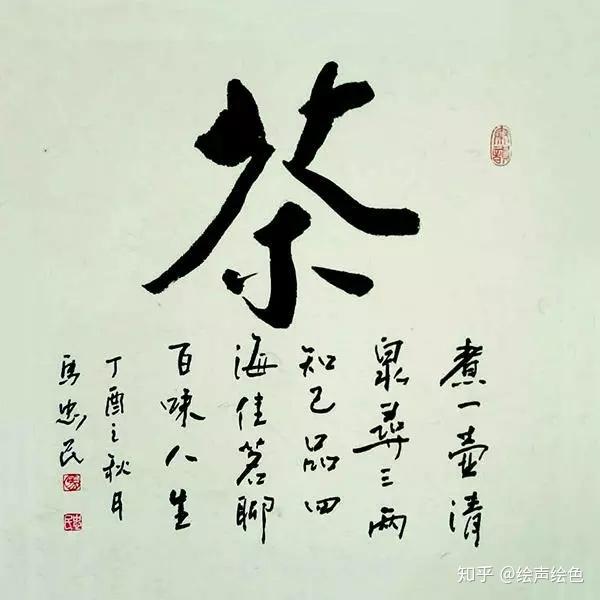 茶
煮一壶清
泉尋三两
知己品四
海佳茗聊
百味人生
丁酉之秋月
马忠民
知乎 @绘声绘色